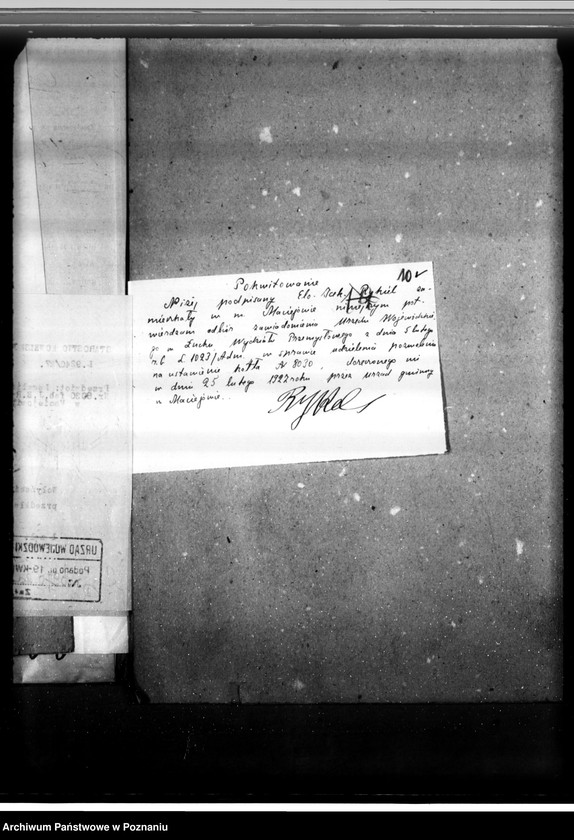 10
Pokwitowanie
Niżej podpisany Elo-Jack Rykiel za-
mieszkały w m. Maciejowie niniejszym pot-
wierdzam odbiór zawiadomienia Urzędu Wojewódzkie
go w Łucku Wydziału Przemysłowego z dnia 5 lutego
r.b L 1023/Adm. w sprawie udzielenia pozwolenia
na ustawienie kotła № 8030, doręczonego mi
w dniu 25 lutego 1922 roku przez urząd gminny
w Maciejowie.
Rykiel
URZĄD WOJEWÓDZKI
Podano pr. 19-KW
Archiwum Państwowe w Poznaniu